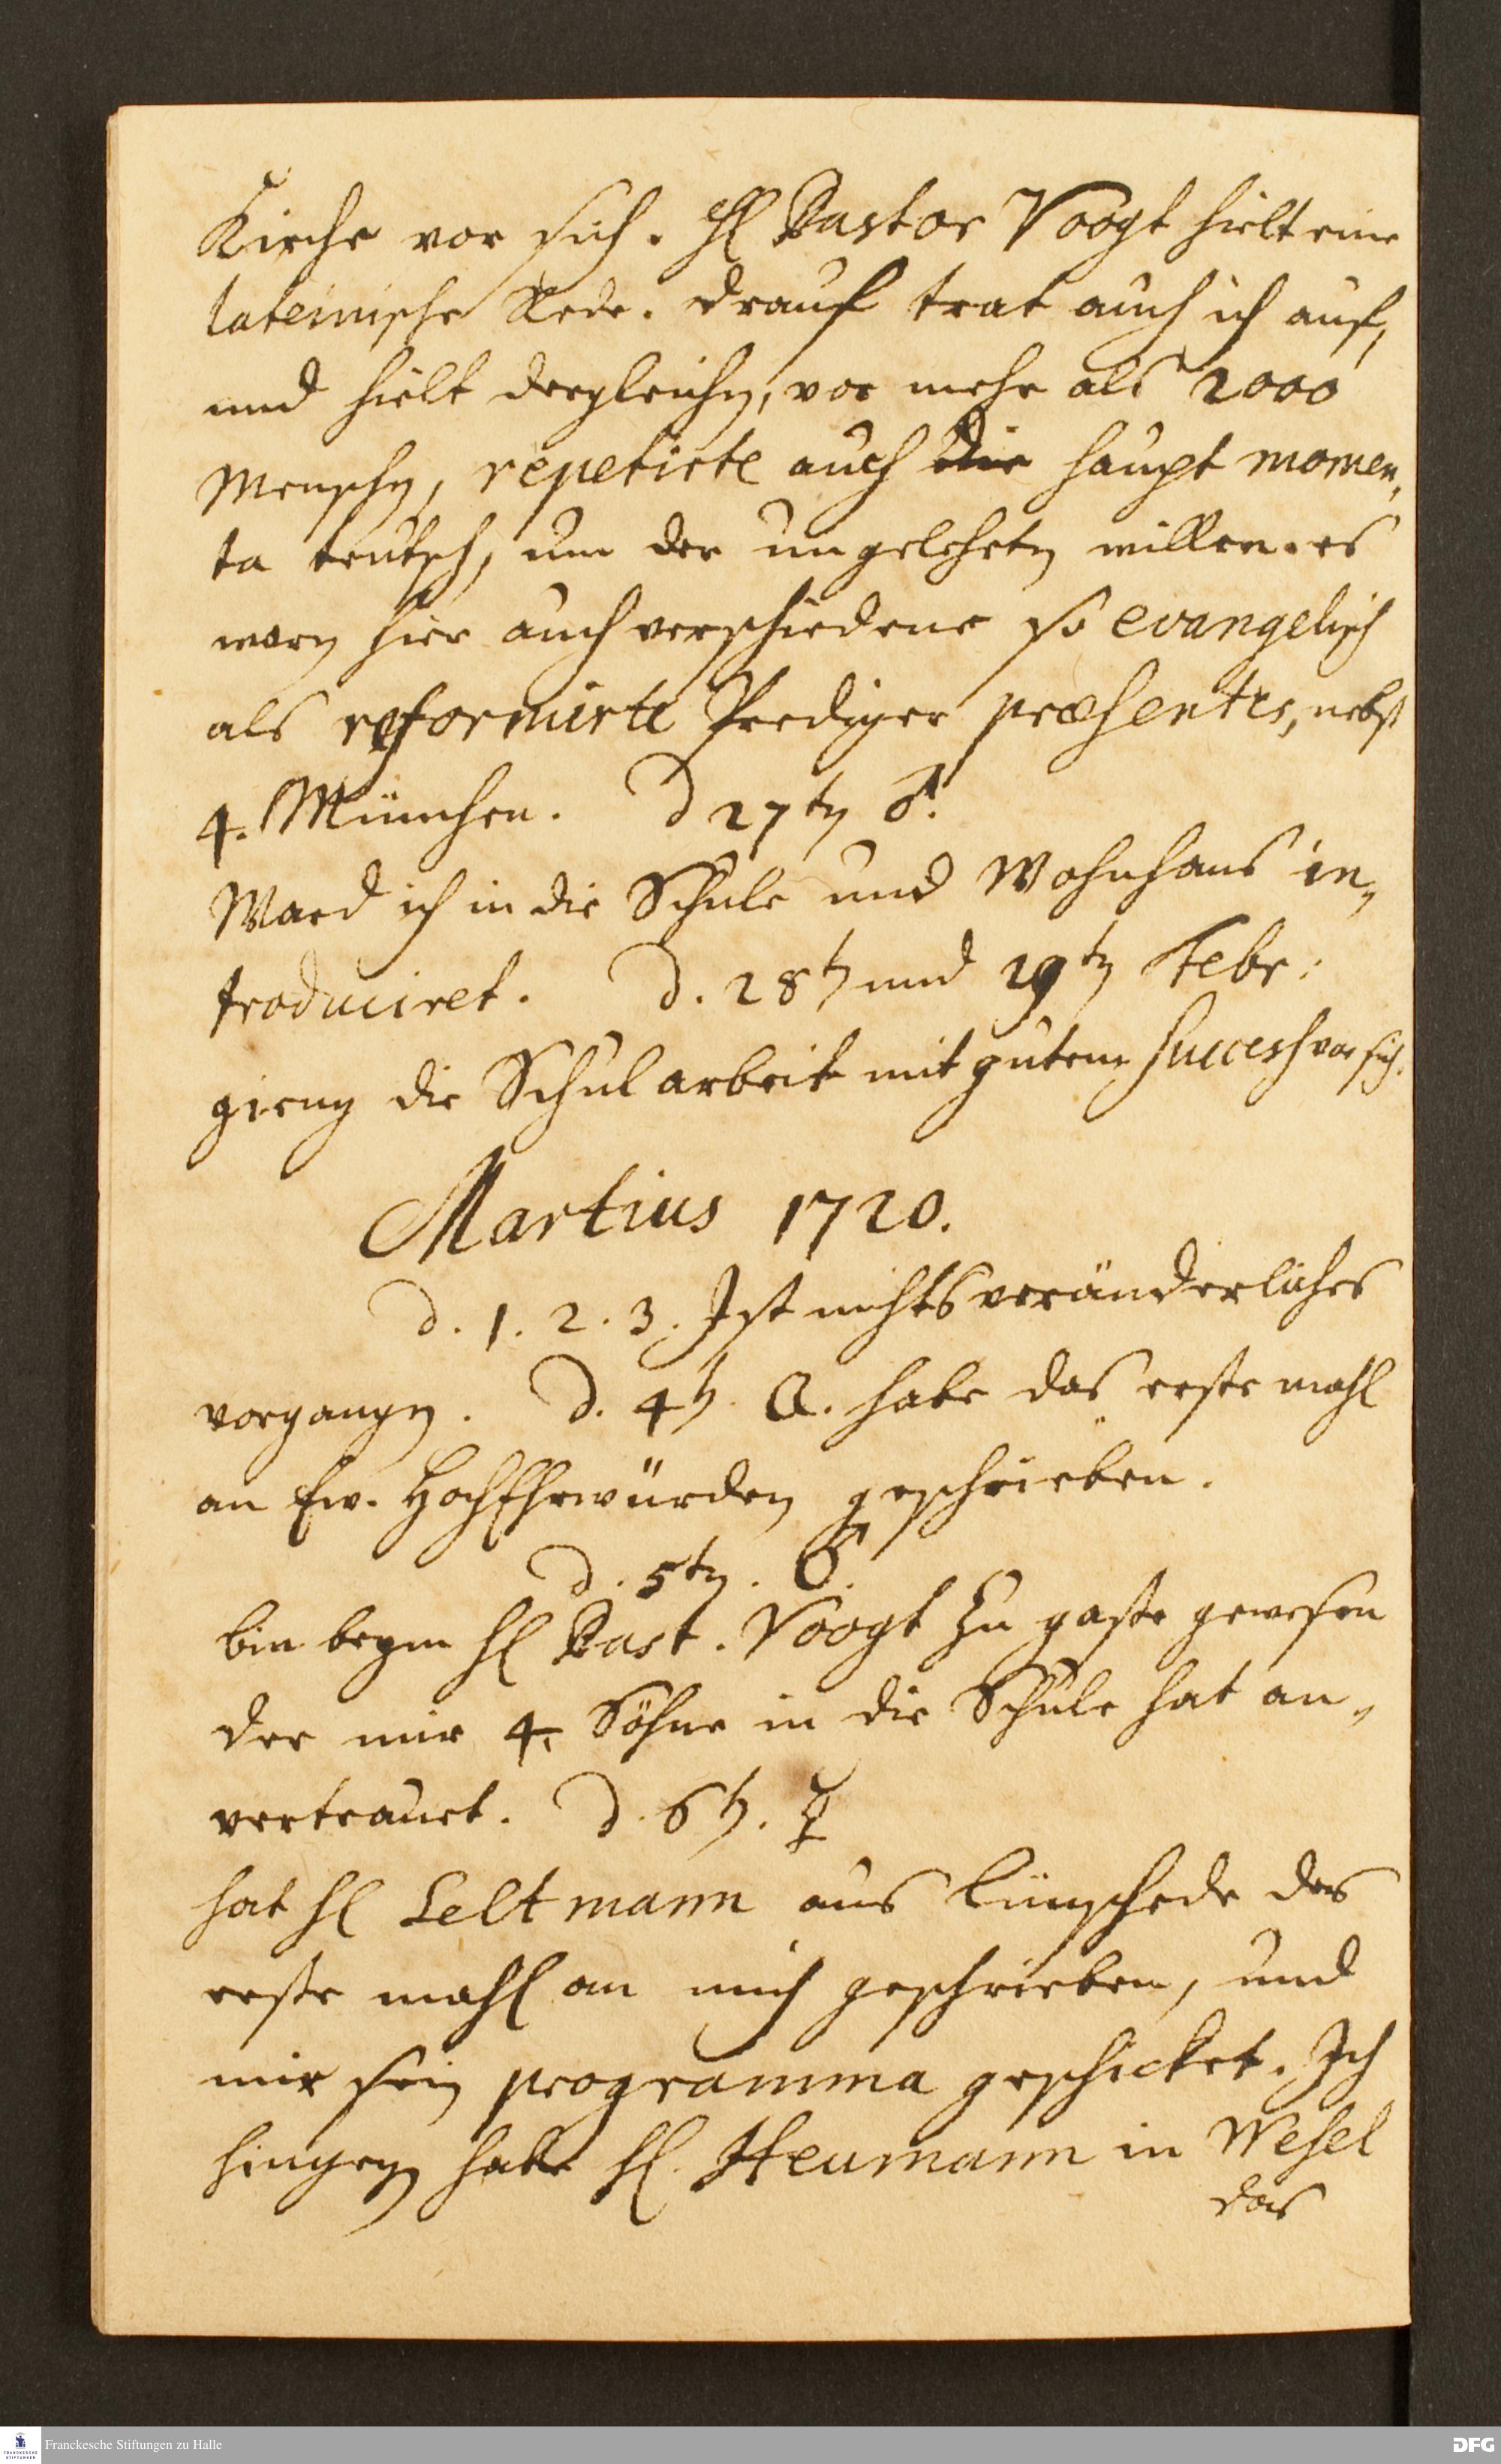 Kirche vor sich. H Pastor Voogt hielt eine
lateinische Rede. Drauf trat auch ich auf,
und hielt dergleichen, vor mehr als 2000
Menschen, repetirte auch die haupt momen,
ta teutsch, um der ungelehrten willen. es
waren hier auch verschiedene so evangelisch
als reformirte Prediger præsentes, nebst
4. München. D 27ten ♂.
Ward ich in die Schule und Wohnhaus in„
troduciret. D. 28ten und 29ten Febr:
gieng die Schularbeit mit gutem Success vor sich.
Martius 1720.
d. 1. 2. 3. Ist nichts veränderliches
vorgangen. D. 4ten habe das erste mahl
an Ew. HochEhrwürden geschrieben.
d. 5ten. ♂.
bin beym H Past. Voogt zu gaste gewesen
der mir 4. Söhne in die Schule hat an„
vertrauet. D. 6ten. ☿
hat H Seltmann aus Lünschede das
erste mahl an mich geschrieben, und
mir sein programma geschicket. Ich
hingegen habe H. Heumann in Wesel
das
Franckesche Stiftungen zu Halle
DFG